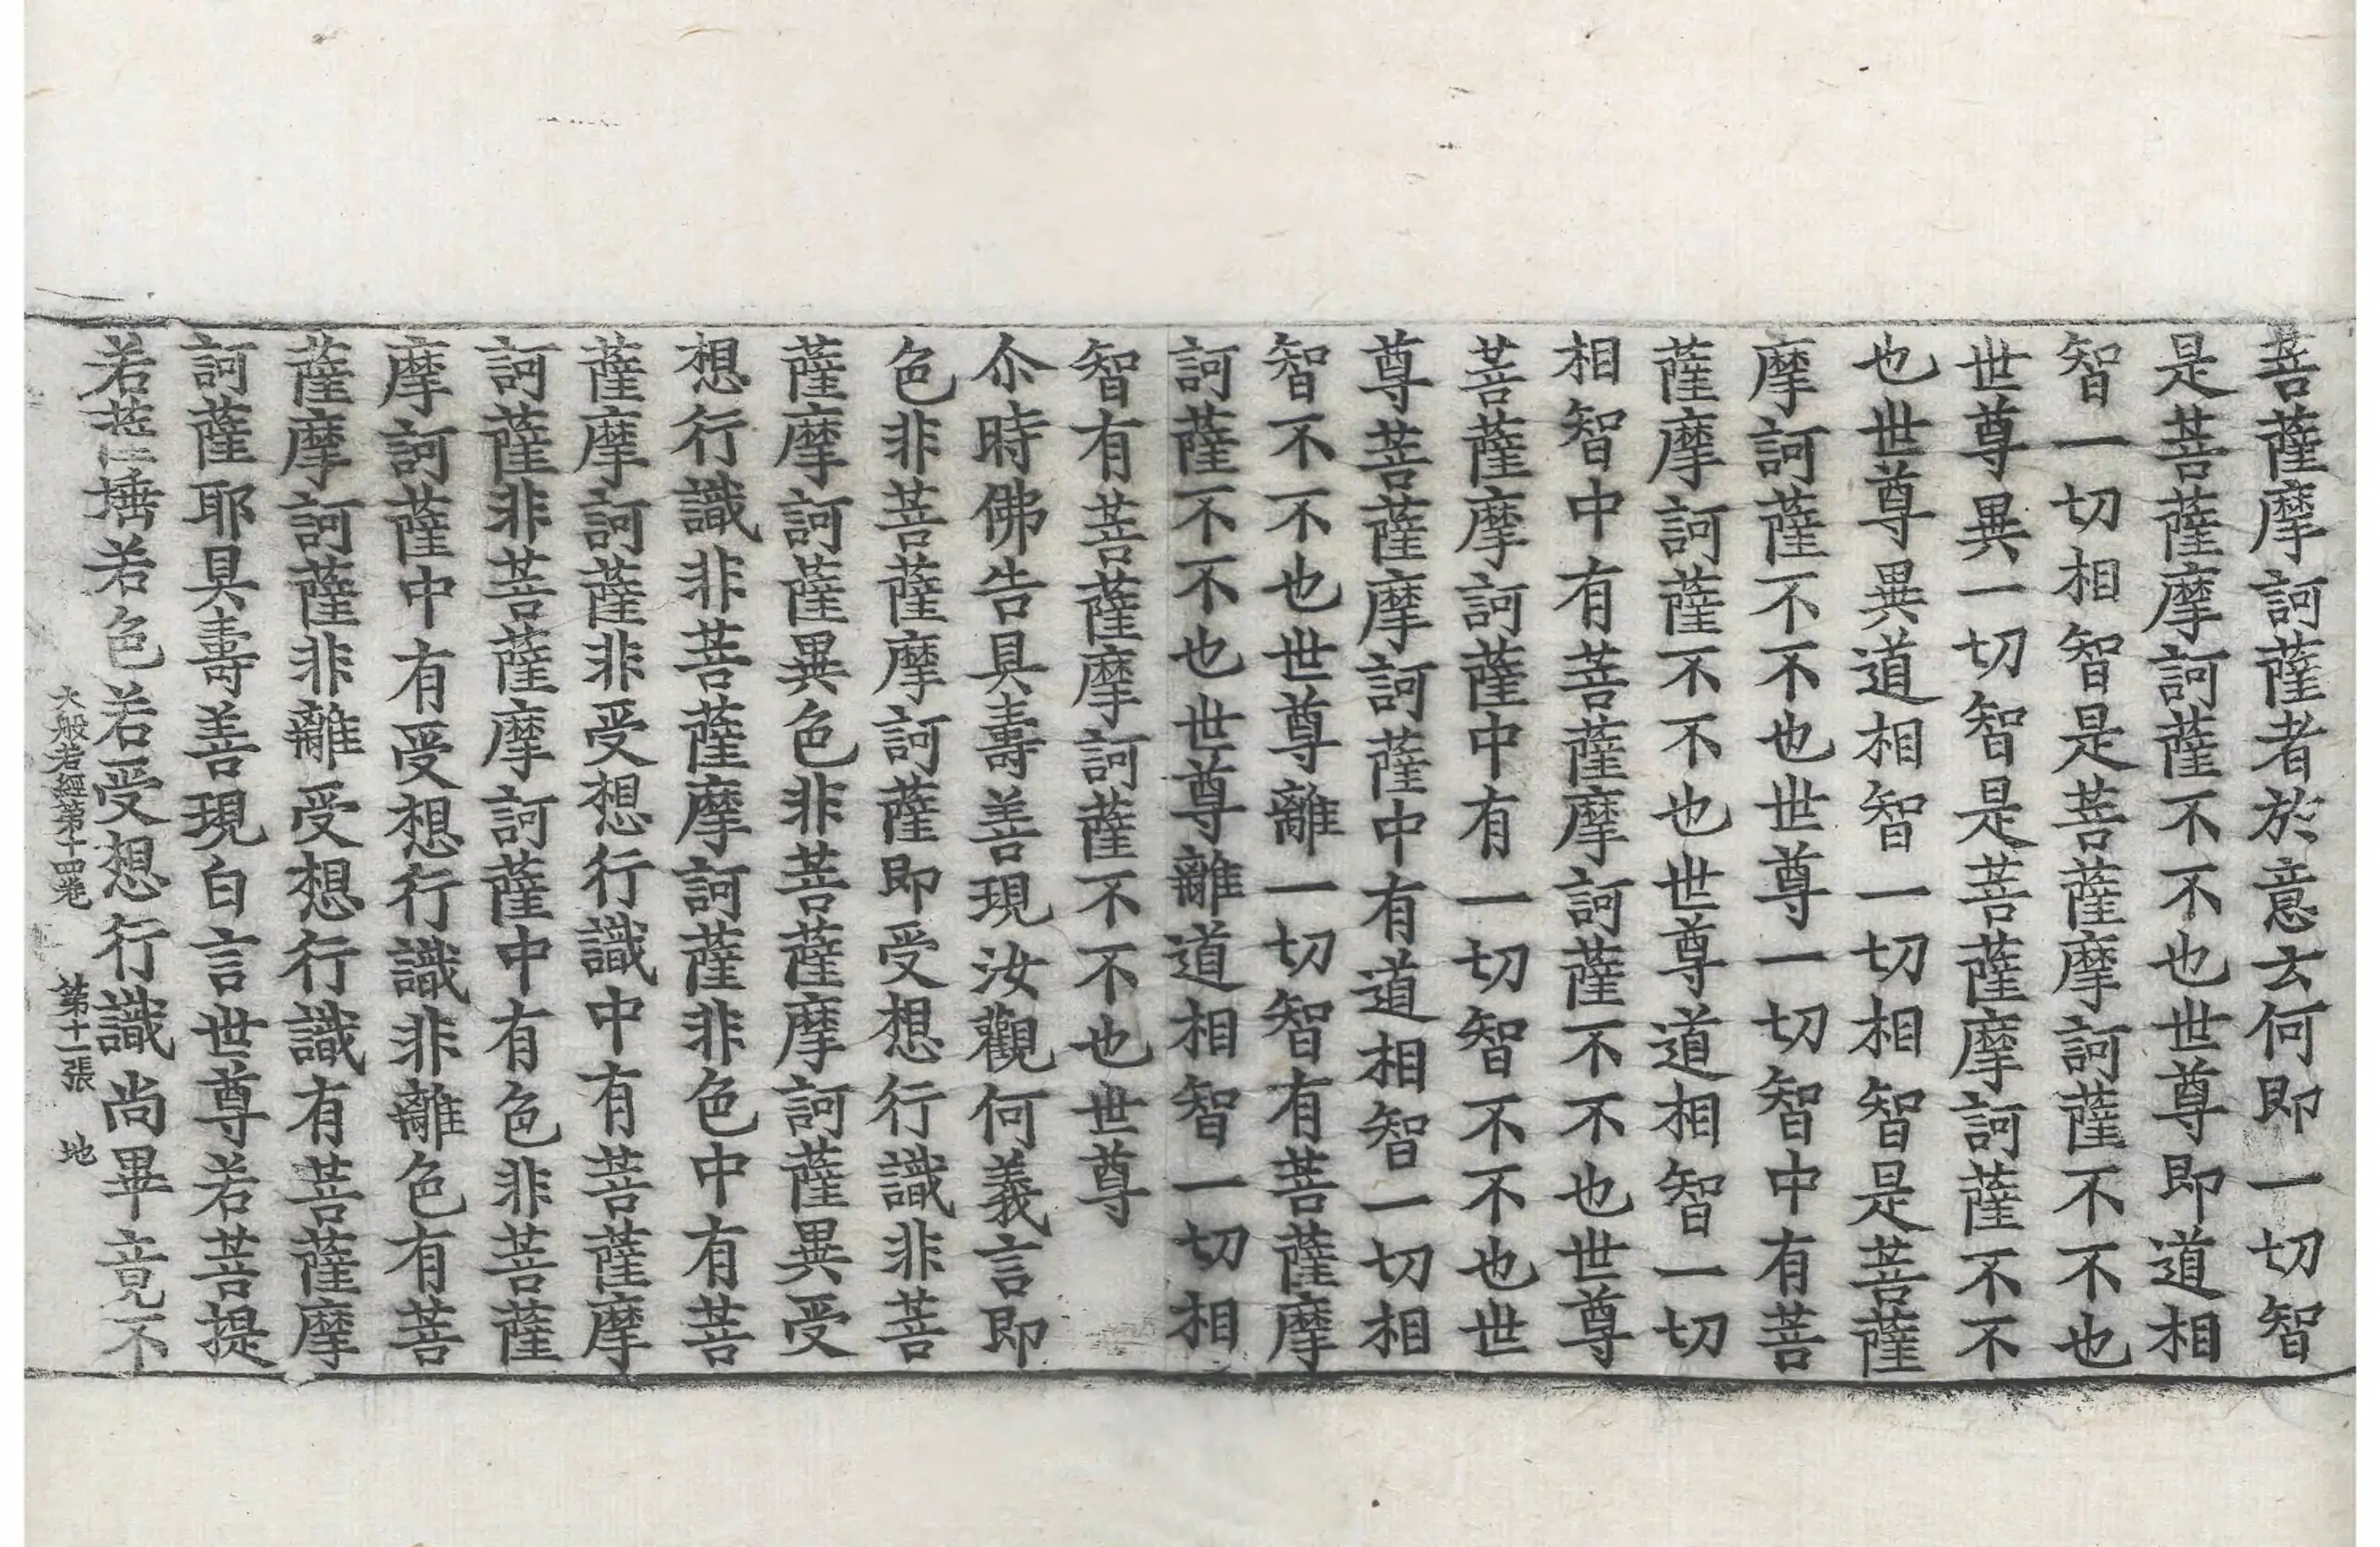 菩薩摩訶薩者於意云何即一切智
是菩薩摩訶薩不不也世尊即道相
智一切相智是菩薩摩訶薩不不也
世尊異一切智是菩薩摩訶薩不不
也世尊異道相智一切相智是菩薩
摩訶薩不不也世尊一切智中有菩
薩摩訶薩不不也世尊道相智一切
相智中有菩薩摩訶薩不不也世尊
菩薩摩訶薩中有一切智不不也世
尊菩薩摩訶薩中有道相智一切相
智不不也世尊離一切智有菩薩摩
訶薩不不也世尊離道相智一切相
智有菩薩摩訶薩不不也世尊
尒時佛告具壽善現汝觀何義言即
色非菩薩摩訶薩即受想行識非菩
薩摩訶薩異色非菩薩摩訶薩異受
想行識非菩薩摩訶薩非色中有菩
薩摩訶薩非受想行識中有菩薩摩
訶薩非菩薩摩訶薩中有色非菩薩
摩訶薩中有受想行識非離色有菩
薩摩訶薩非離受想行識有菩薩摩
訶薩耶具壽善現白言世尊若菩提
若菩埵若色若受想行識尚畢竟不
大般若經第十四卷 第十一張 地